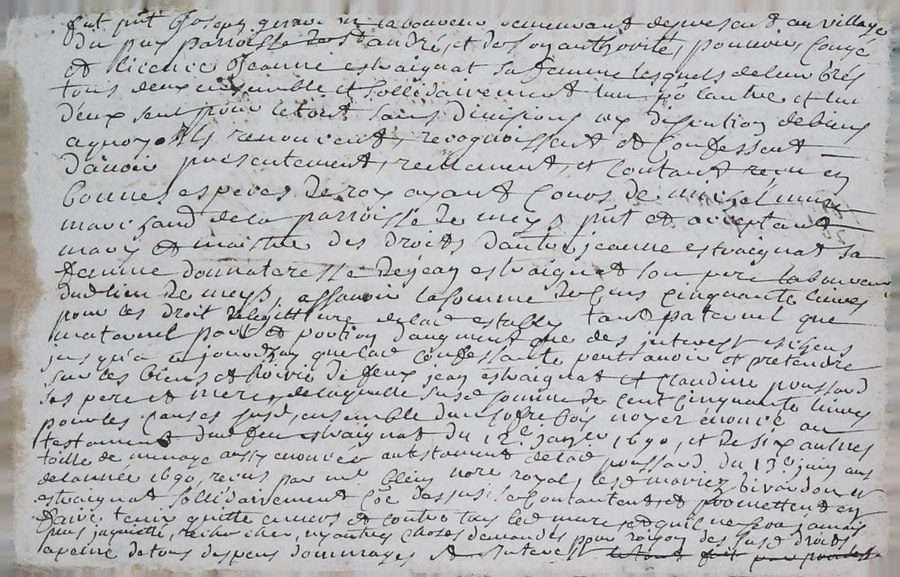 fut pnt Joseph girau laboureur demeurant depresent au village
du puy parroisse de St andré, et de son authorité, pouvoir, Congé
et licence Jeanne estraignat sa femme lesquels de leur grés
tous deux ensemble et sollidairement lun pō lautre et lun
d'eux seul pour letout sans division ny discution de biens
aquoy ils renoncent, recognoissent et Confessent
d'avoir presentement, reellement, et Contant receu en
bonnes especes de roy ayant Cours de michel
marchand de la parroisse de meys pnt et acceptant
mary et maistre des droits d'autre jeanne estraignat sa
femme donnateresse de jean estraignat son pere laboureur
dud lieu de meys, assavoir la somme de Cent cinquante livres
pour les droit de legittime de lad establye tant paternel que
maternel part et portion d'augment que des interest escheus
jusqu'a aujourdhuy que lad Confessante peut avoir et pretendre
sur les biens et hoirie de feux jean estraignat et Claudine poussard
ses pere et mere, de laquelle susd somme de Cent Cinquante livres
pour les Causes susd, ensemble du Coffre bois noyer énoncé au
testament dud feu estraignat du 12e janv 1690, et de six autres
toille de menage aussy enoncez au testament de lad poussard du 13e juin aud
de lannée 1690, receus par me blein nore royal, lesd mariez
estraignat sollidairement Cōe dessus se Contentent et promettent en
faire tenir quitte envers et contre tous led mure et quil ne sera jamais
plus inquietté, recherché, ny autres choses demandés pour raison des susd droits
a peine de tous despens dommages et interest letout fait par